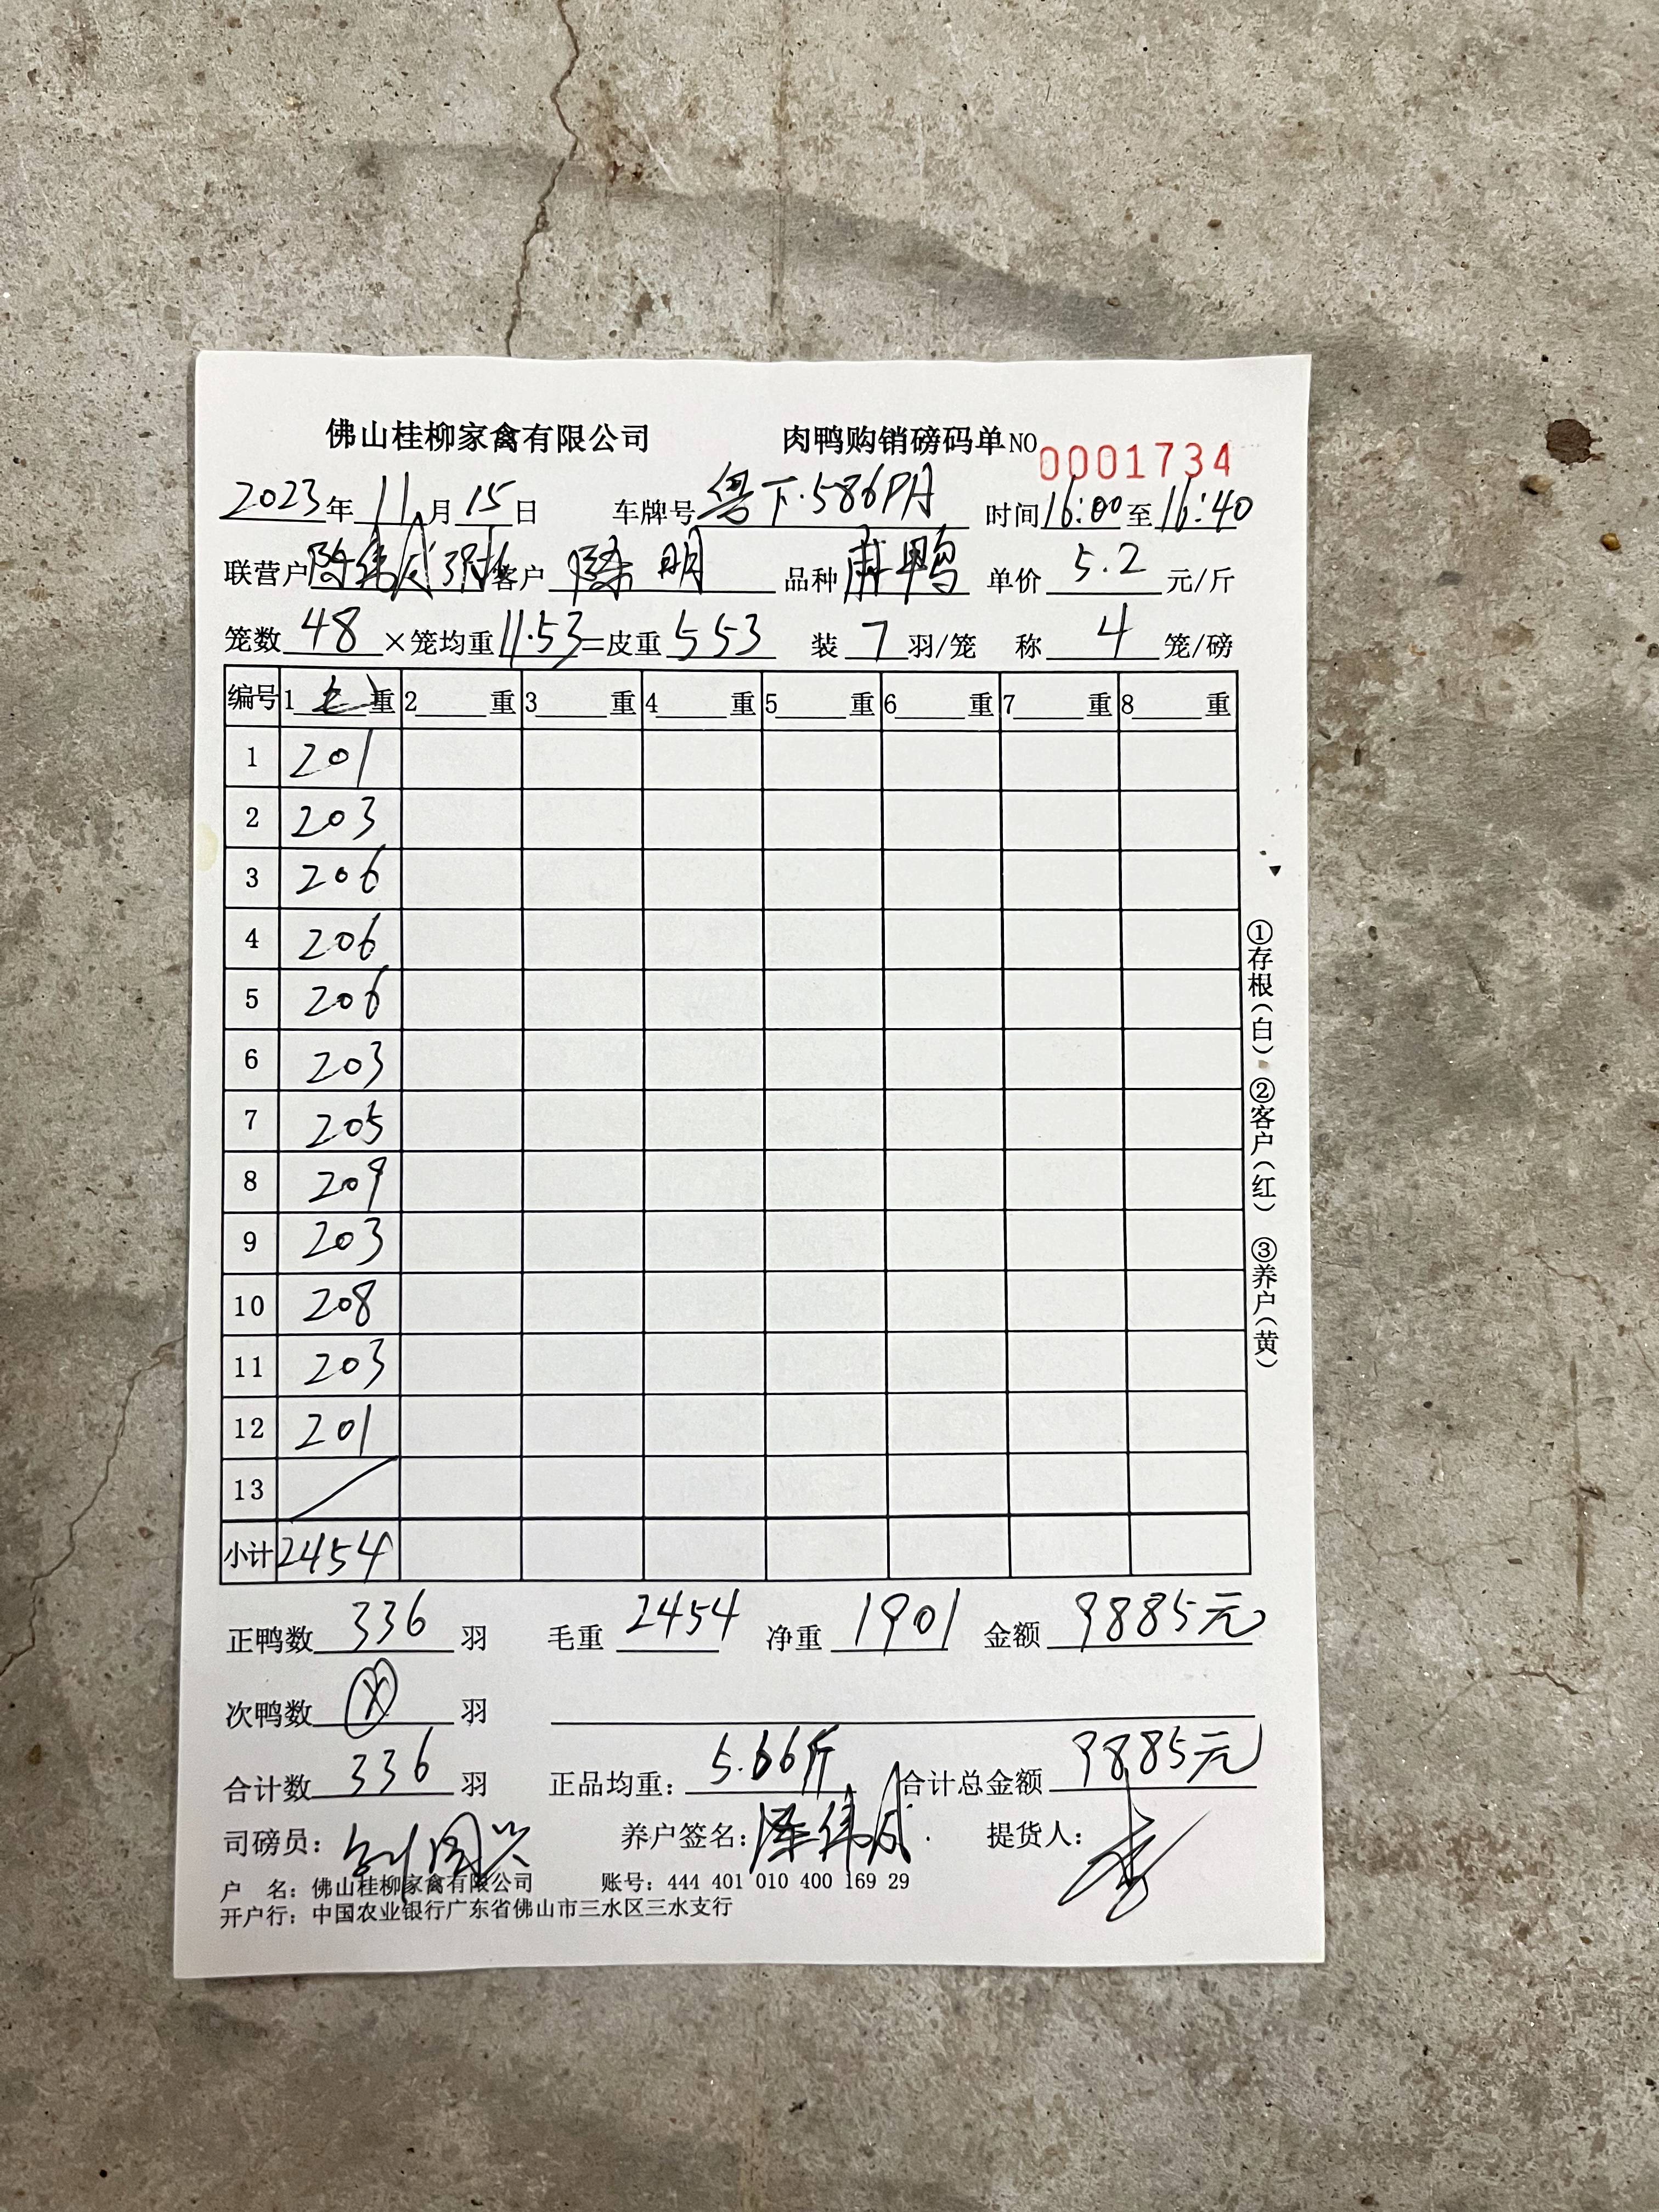 佛山桂柳家禽有限公司 肉鸭购销磅码单NO 0001734
2023年11月15日 车牌号粤下·586PA 时间16:00至16:40
联营户 客户 陈明 品种 鸭 单价 5.2 元/斤
笼数 48 ×笼均重 11.53 =皮重 553 装 7 羽/笼 称 4 笼/磅
编号 1 毛 重 2 重 3 重 4 重 5 重 6 重 7 重 8 重
1 201
2 203
3 206
4 206
5 206
6 203
7 205
8 209
9 203
10 208
11 203
12 201
13
小计 2454
正鸭数 336 羽 毛重 2454 净重 1901 金额 9885元
次鸭数 羽
合计数 336 羽 正品均重: 5.66斤 合计总金额 9885元
司磅员: 养户签名: 陈伟成 提货人: 李
户 名: 佛山桂柳家禽有限公司 账号: 444 401 010 400 169 29
开户行: 中国农业银行广东省佛山市三水区三水支行
①存根(白) ②客户(红) ③养户(黄)